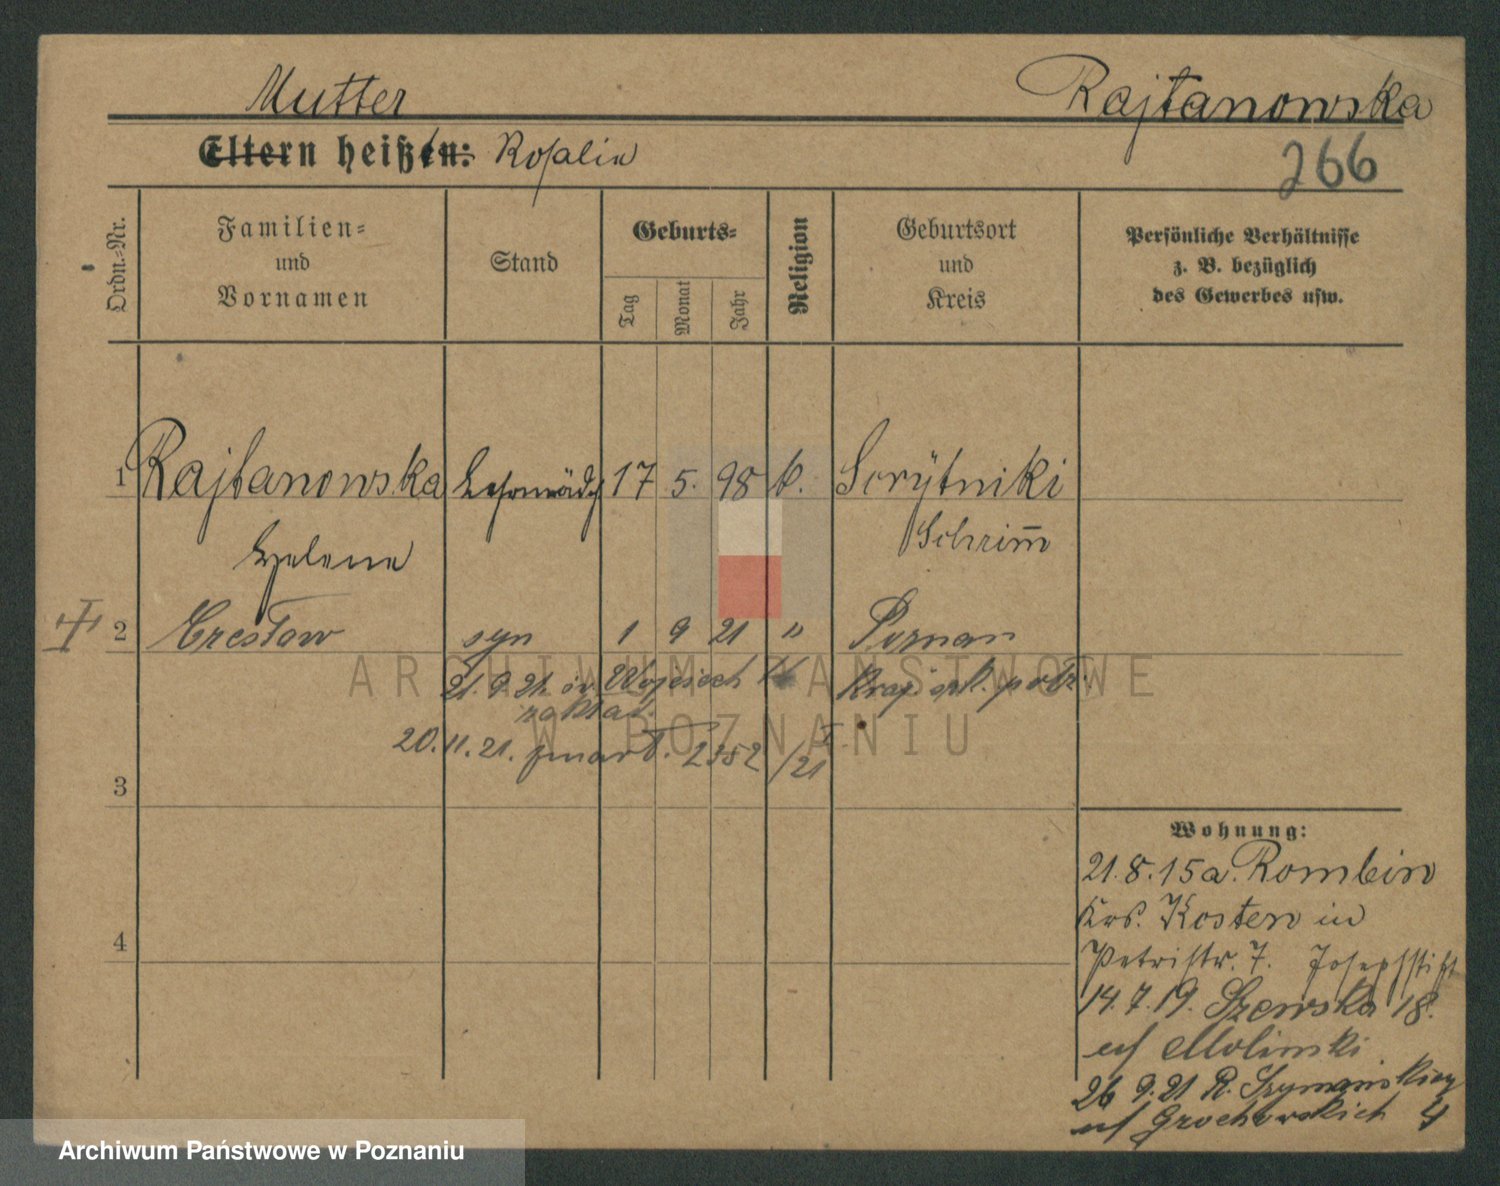 Mutter
Rajtanowska
Eltern heißen: Rosalie
266
Ordn.-Nr.
Familien-
und
Vornamen
Stand
Geburts-
Tag
Monat
Jahr
Religion
Geburtsort
und
Kreis
Persönliche Verhältnisse
z. B. bezüglich
des Gewerbes usw.
1 Rajtanowska 17 5. 98 k.
Schrimm
Helene
2 Czesław syn 1 9 21 " Poznan
21. 9. 21 Wojciech
zakład.
20. 11. 21. zmarł. 2352/21
3
Wohnung:
21. 8. 15 a. Rombin
Krs. Kosten in
4
Petristr. 7. Josephstift
14. 7. 19. Szewska 18.
Molinski
26 9. 21 R. Szymańskiey
Grochowskich 4
ARCHIWUM PAŃSTWOWE
W POZNANIU
Archiwum Państwowe w Poznaniu